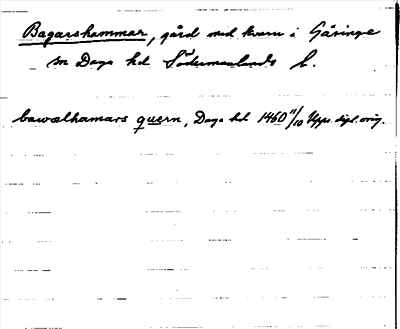 Bagarshammar, gård med kvarn i Gåsinge
sn Daga hd Södermanlands l.
bawælhamars quern, Daga hd 1460 11/10 Upps. dipl. orig.